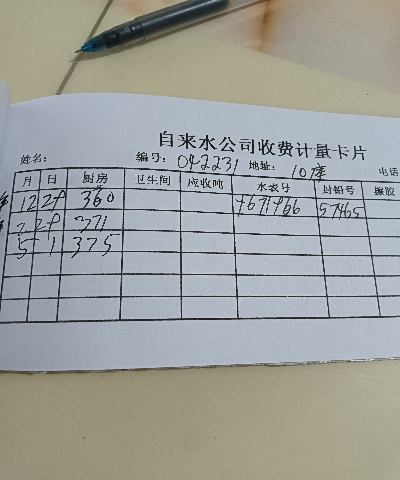 自来水公司收费计量卡片
姓名: 编号: 042231 地址: 10库 电话
月 日 厨房 卫生间 应收吨 水表号 封铅号 橡胶
12 28 360 57465
2 28 371
5 1 375